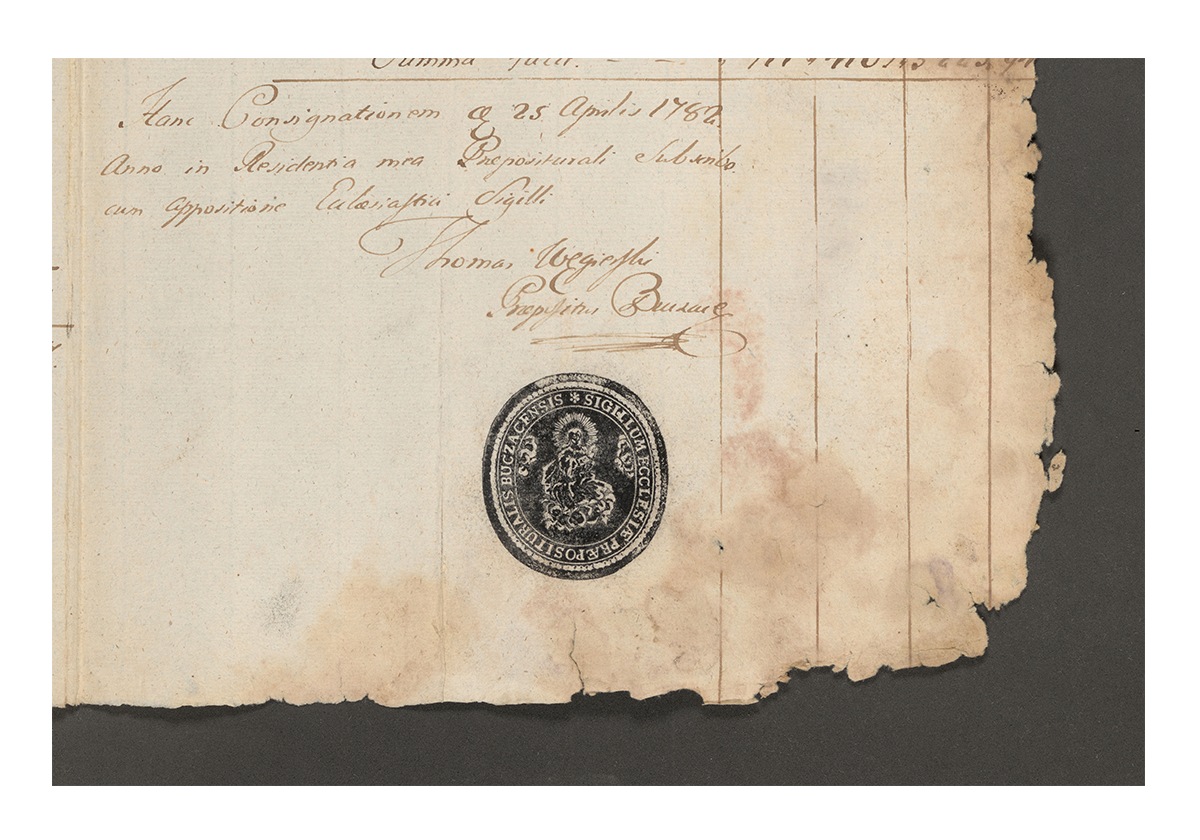 Summa
Hanc Consignationem 25 Aprilis 1782
Anno in Residentia mea Præpositurali Subscribo
cum Appositione Ecclæsiastici Sigilli
Thomas Węgierski
Præpositus
SIGILLUM ECCLESIÆ PRÆPOSITURALIS BUCZACENSIS